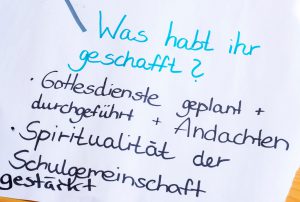 Was habt ihr
geschafft?
· Gottesdienste geplant +
durchgeführt + Andachten
· Spiritualität der
Schulgemeinschaft
gestärkt